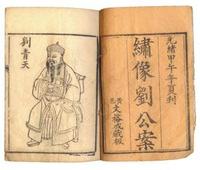 光緒甲午年夏刊
繡像劉公案
文裕藏板
刘青天